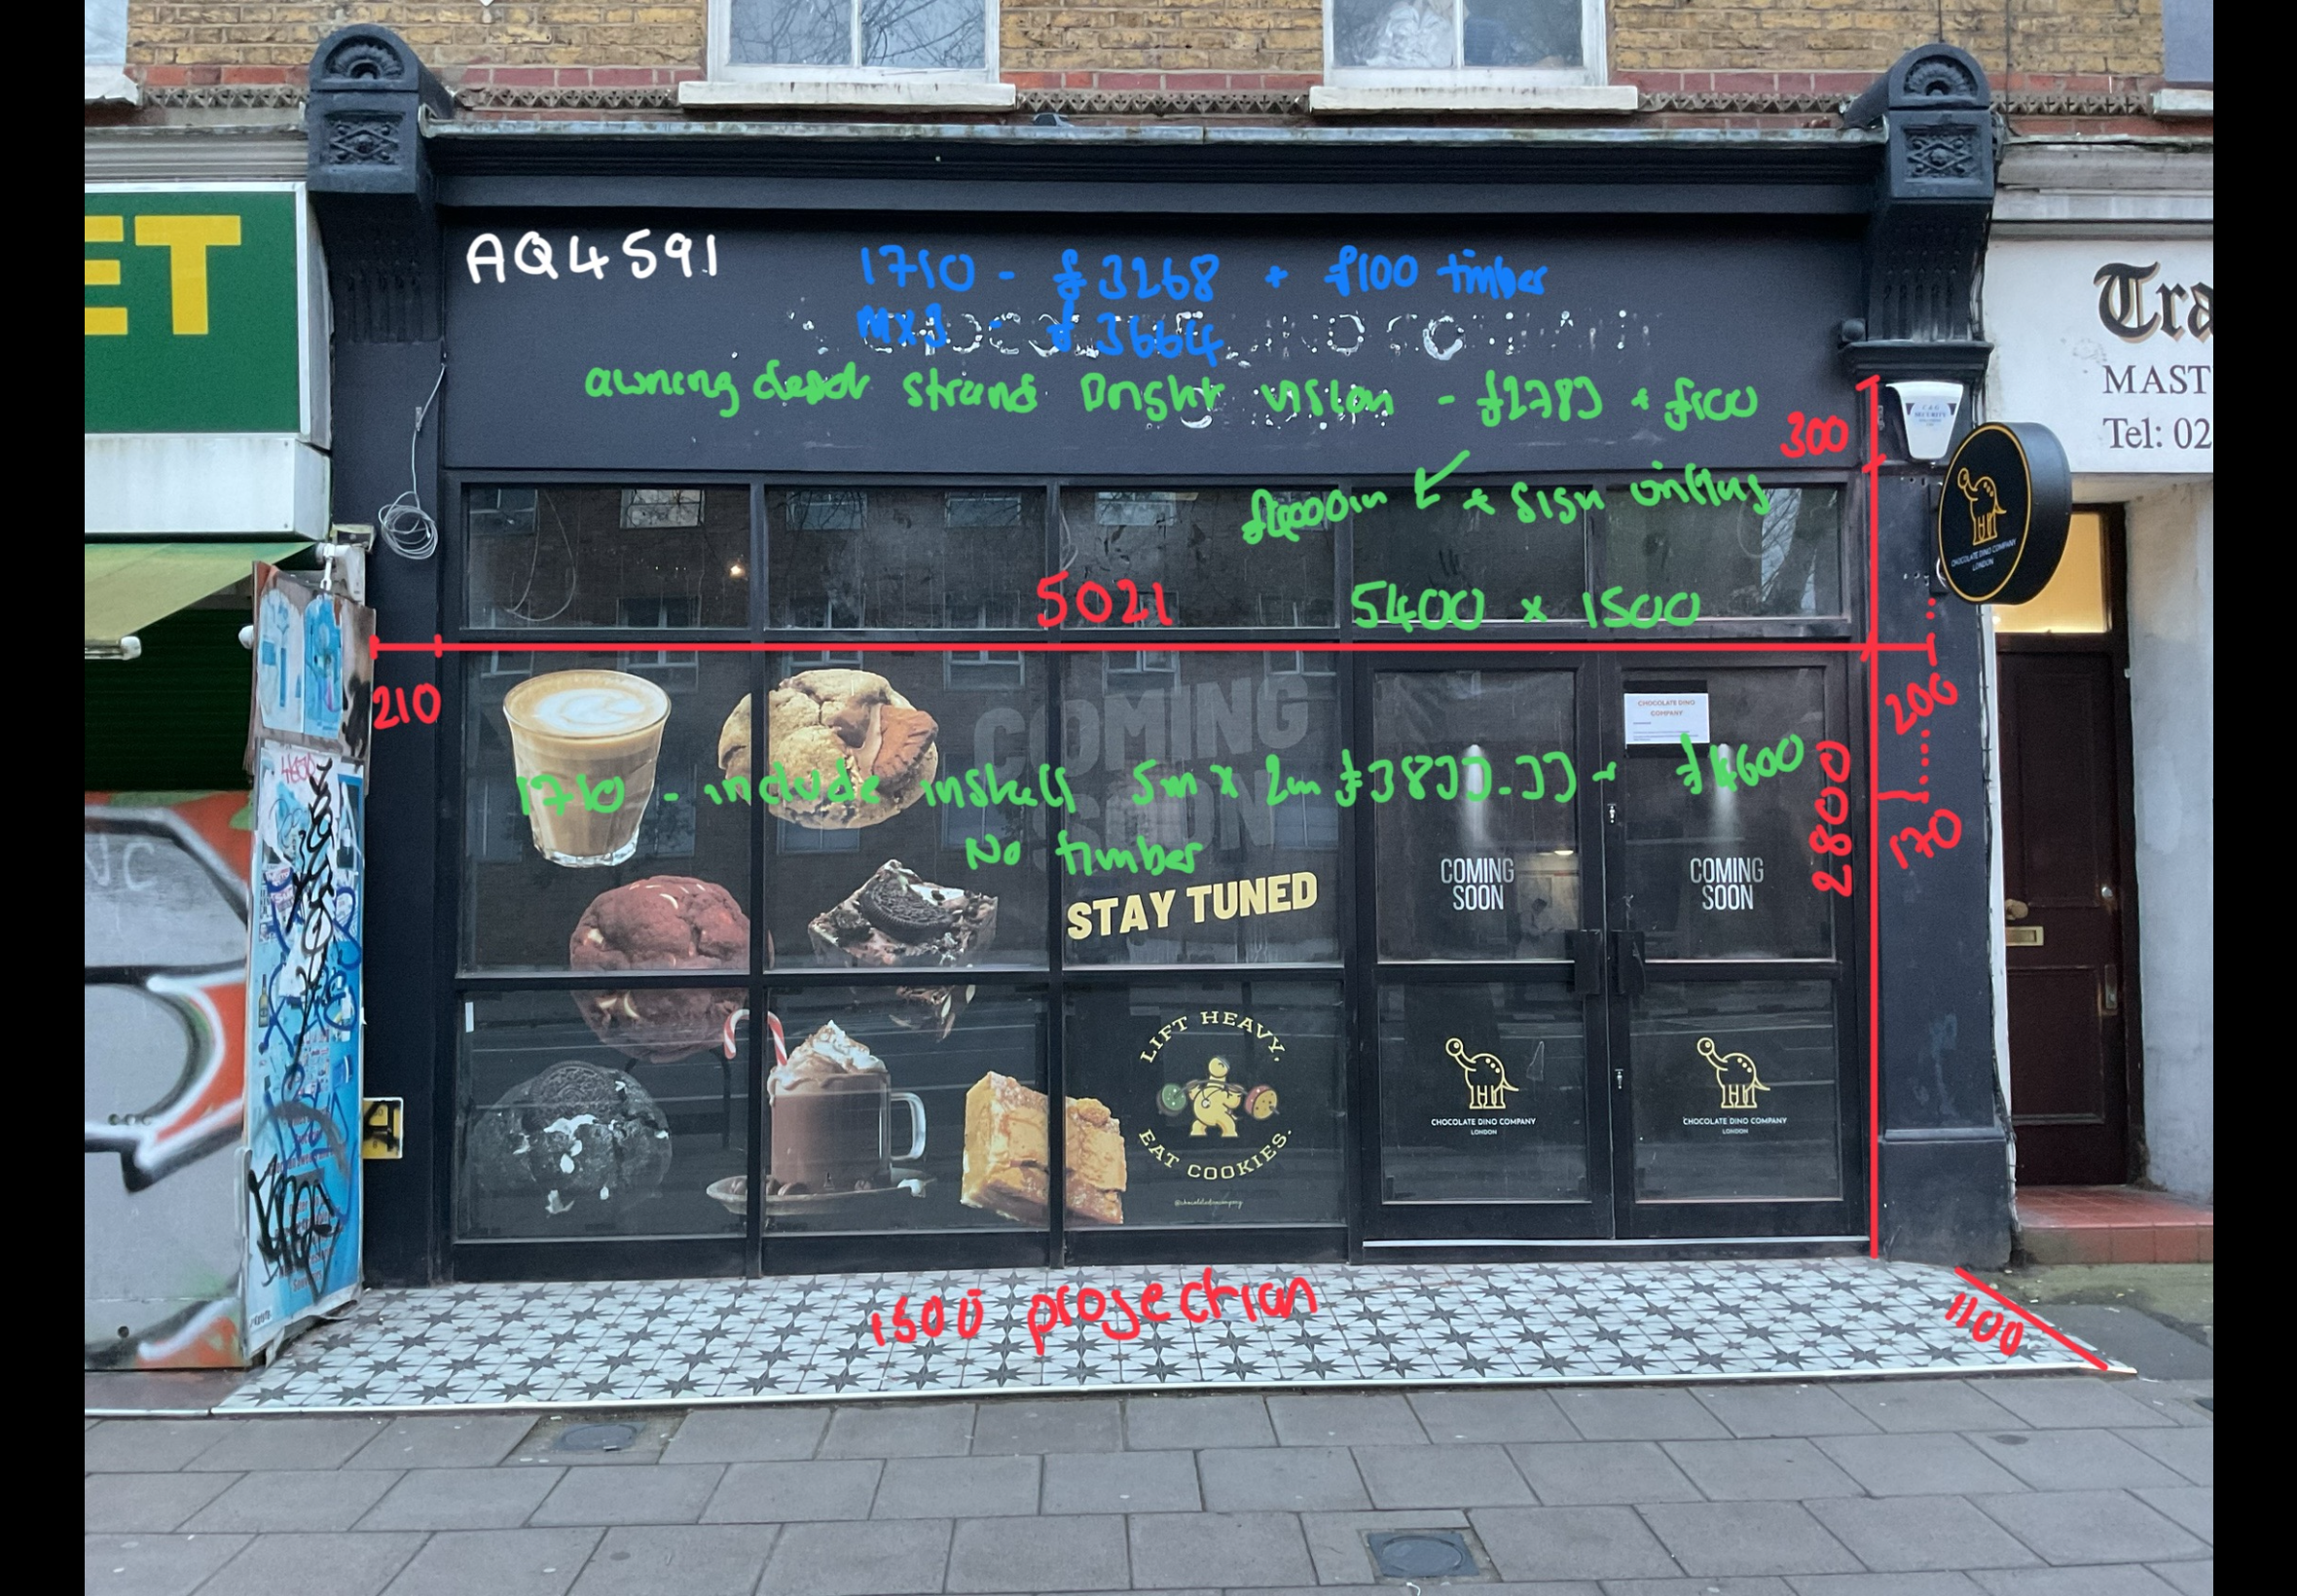 ET
AQ4591
1710 - £3268 + £100 timber
MX3 - £3664
Tra
MAST
Tel: 02
awning depot strand vision - £2783 + £100
300
+ sign writing
CHOCOLATE DINO COMPANY
LONDON
5021
5400 x 1500
210
200
COMING
SOON
CHOCOLATE DINO
COMPANY
1710 - include install 5m x 2m £3833.33 - £4600
No timber
2800
170
COMING
SOON
COMING
SOON
STAY TUNED
LIFT HEAVY.
EAT COOKIES.
@chocolatedinocompany
CHOCOLATE DINO COMPANY
LONDON
CHOCOLATE DINO COMPANY
LONDON
1500 projection
1100